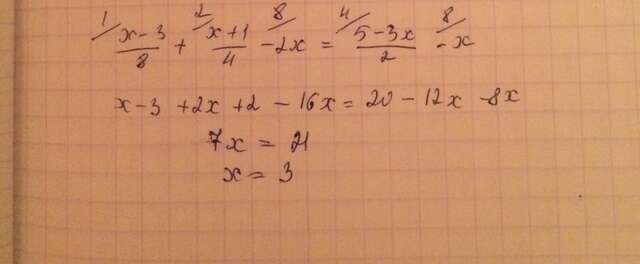 1/ 2/ 8/ 4/ 8/
(x-3)/8 + (x+1)/4 - 2x = (5-3x)/2 - x
x-3 +2x +2 - 16x = 20 - 12x - 8x
7x = 21
x = 3